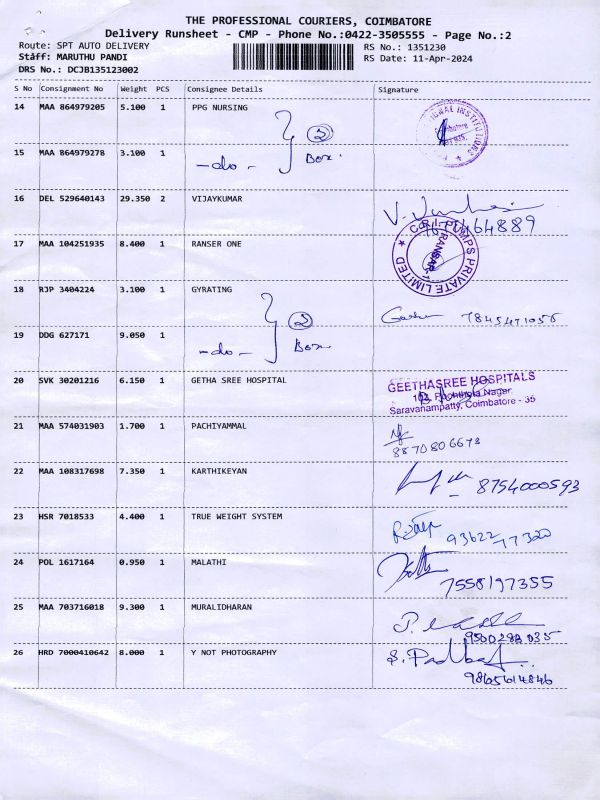 THE PROFESSIONAL COURIERS, COIMBATORE
Delivery Runsheet - CMP - Phone No.:0422-3505555 - Page No.:2
Route: SPT AUTO DELIVERY
RS No.: 1351230
Staff: MARUTHU PANDI
RS Date: 11-Apr-2024
DRS No.: DCJB135123002
S No Consignment No Weight PCS Consignee Details Signature
14 MAA 864979205 5.100 1 PPG NURSING
2
Box.
15 MAA 864979278 3.100 1 -do-
16 DEL 529640143 29.350 2 VIJAYKUMAR
64889
17 MAA 104251935 8.400 1 RANSER ONE
C.R.I. PUMPS PRIVATE LIMITED
18 RJP 3404224 3.100 1 GYRATING
2
7845471056
19 DDG 627171 9.050 1 -do- Box
20 SVK 30201216 6.150 1 GETHA SREE HOSPITAL
GEETHASREE HOSPITALS
Nagar
Saravanampatty, Coimbatore - 35
21 MAA 574031903 1.700 1 PACHIYAMMAL
8870806673
22 MAA 108317698 7.350 1 KARTHIKEYAN
8754000593
23 HSR 7018533 4.400 1 TRUE WEIGHT SYSTEM
93622 77320
24 POL 1617164 0.950 1 MALATHI
7558197355
25 MAA 703716018 9.300 1 MURALIDHARAN
9500288035
26 HRD 7000410642 8.000 1 Y NOT PHOTOGRAPHY
9865614846